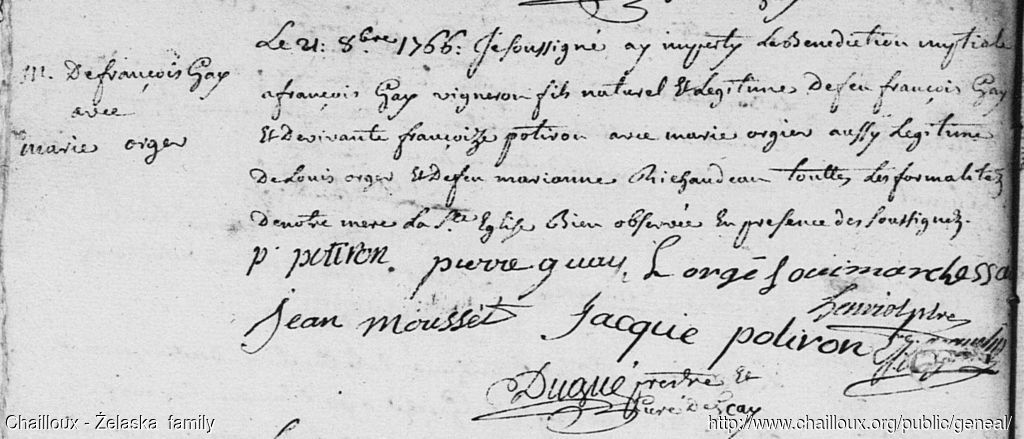 M. Defrançois Gay
avec
marie orger
Le 21: 8bre 1766: Je soussigné ay imparty La Benediction nuptiale
a françois Gay vigneron fils naturel Et Legitime Defeu françois Gay
Et Devivante françoizze potiron avec marie orgier aussy Legitime
De Louis orger Et Defeu marianne Richaudeau touttes Les formalitez
De notre mere La Ste Eglise Bien observée En presence des soussignez.
p potiron. pierre guay, L orgé Louimarchessa
Jean Mousset Jacque potiron henriot ptre
Dugué prestre Et
Curé De Scay
Chailloux - Żelaska family
http://www.chailloux.org/public/geneal/